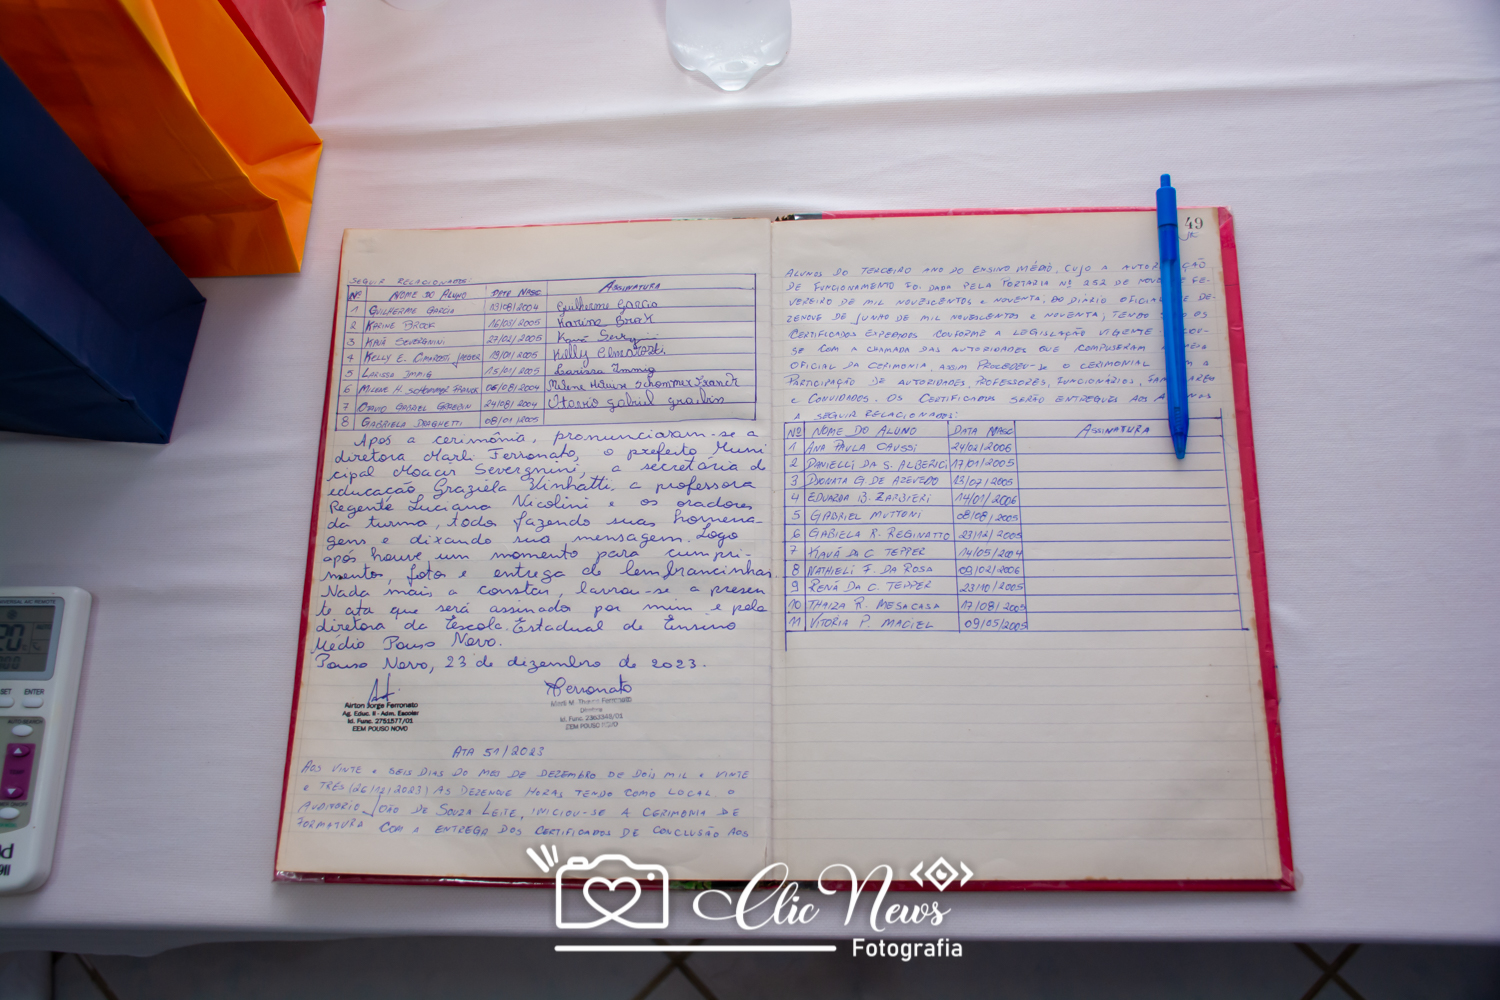 SEGUIR RELACIONADOS:
Nº NOME DO ALUNO DATA NASC ASSINATURA
1 GUILHERME GARCIA 13/08/2004 Guilherme Garcia
2 KARINE BROCK 16/03/2005 Karine Brock
3 KAUÃ SEVERGNINI 27/02/2005 Kauã
4 KELLY E. 19/01/2005 Kelly
5 LARISSA IMMIG 15/01/2005 Larissa Immig
6 H. 06/08/2004
7 OTAVIO GABRIEL 24/08/2004 Otavio gabriel
8 GABRIELA DRAGHETTI 08/01/2005
Após a cerimônia, pronunciaram-se a
diretora Marli Ferronato, o prefeito Muni
cipal Moacir Severgnini, a secretária de
educação Graziela a professora
Regente Luciana Nicolini e os oradores
da turma, todos fazendo suas homena-
gens e dixando sua mensagem. Logo
após houve um momento para cumpri-
mentos, fotos e entrega de lembrancinhas.
Nada mais a constar, lavrou-se a presen
te ata que será assinada por mim e pela
diretora da Escola Estadual de Ensino
Médio Pouso Novo.
Pouso Novo, 23 de dezembro de 2023.
Ferronato
Airton Jorge Ferronato
Ag. Educ. II - Adm. Escolar
Id. Func. 2751577/01
EEM POUSO NOVO
Marli M. Ferronato
Diretora
Id. Func. 2363348/01
EEM POUSO NOVO
ATA 51/2023
AOS VINTE e SEIS DIAS DO MES DE DEZEMBRO DE DOIS MIL e VINTE
e TRÊS (26/12/2023) AS DEZENOVE HORAS TENDO COMO LOCAL O
AUDITÓRIO JOÃO DE SOUZA LEITE, INICIOU-SE A CERIMONIA DE
FORMATURA COM A ENTREGA DOS CERTIFICADOS DE CONCLUSÃO AOS
49
ALUNOS DO TERCEIRO ANO DO ENSINO MÉDIO, CUJO A AUTOR ÇÃO
DE FUNCIONAMENTO FOI DADA PELA PORTARIA Nº 252 DE NOVE FE-
VEREIRO DE MIL NOVECENTOS e NOVENTA, DO DIÁRIO OFICIAL DE-
ZENOVE DE JUNHO DE MIL NOVESCENTOS e NOVENTA; TENDO OS
CERTIFICADOS EXPEDIDOS CONFORME A LEGISLAÇÃO VIGENTE
SE COM A CHAMADA DAS AUTORIDADES QUE COMPUSERAM
OFICIAL DA CERIMONIA, ASSIM PROCEDEU-SE O CERIMONIAL A
PARTICIPAÇÃO DE AUTORIDADES, PROFESSORES, FUNCIONÁRIOS,
e CONVIDADOS. OS CERTIFICADOS SERÃO ENTREGUES AOS
A SEGUIR RELACIONADOS:
Nº NOME DO ALUNO DATA NASC ASSINATURA
1 ANA PAULA CAUSSI 24/02/2006
2 DANIELLI DA S. ALBERICI 17/01/2005
3 DIONATA G. DE AZEVEDO 13/07/2005
4 EDUARDA B. ZARBIERI 14/01/2006
5 GABRIEL MUTTONI 08/08/2005
6 GABIELA R. REGINATTO 23/12/2005
7 KAUÃ DA C. TEPPER 14/05/2004
8 NATHIELI F. DA ROSA 09/02/2006
9 RENÃ DA C. TEPPER 23/10/2005
10 THAIZA R. MESACASA 17/08/2005
11 VITORIA P. MACIEL 09/05/2005
UNIVERSAL A/C REMOTE
SET ENTER
Clic News
Fotografia